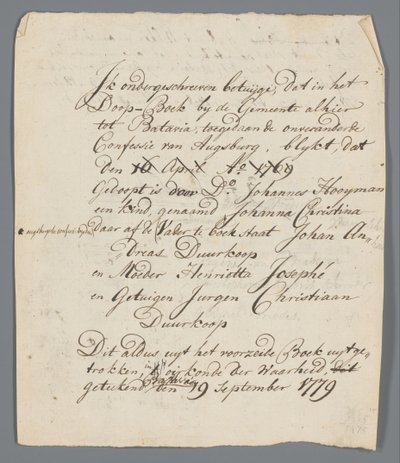 Ik ondergeschreeven betuijge, dat in het
Doop-Boek by de Gemeente alhier
tot Batavia, toegedaan de onveranderde
Confessie van Augsburg, blykt, dat
den 16 April Ao. 1769
Gedoopt is door Do. Johannes Hooyman
een kind, genaamd Johanna Christina
daar af de Vader te boek staat Johan An=
dreas Duurkoop
en Moeder Henrietta Josephé
en Getuigen Jurgen Christiaan
Duurkoop
Dit aldus uyt het voorzeide Boek uytge=
trokken, oirkonde der Waarheid, dit
getekend Batavia den 19 September 1779